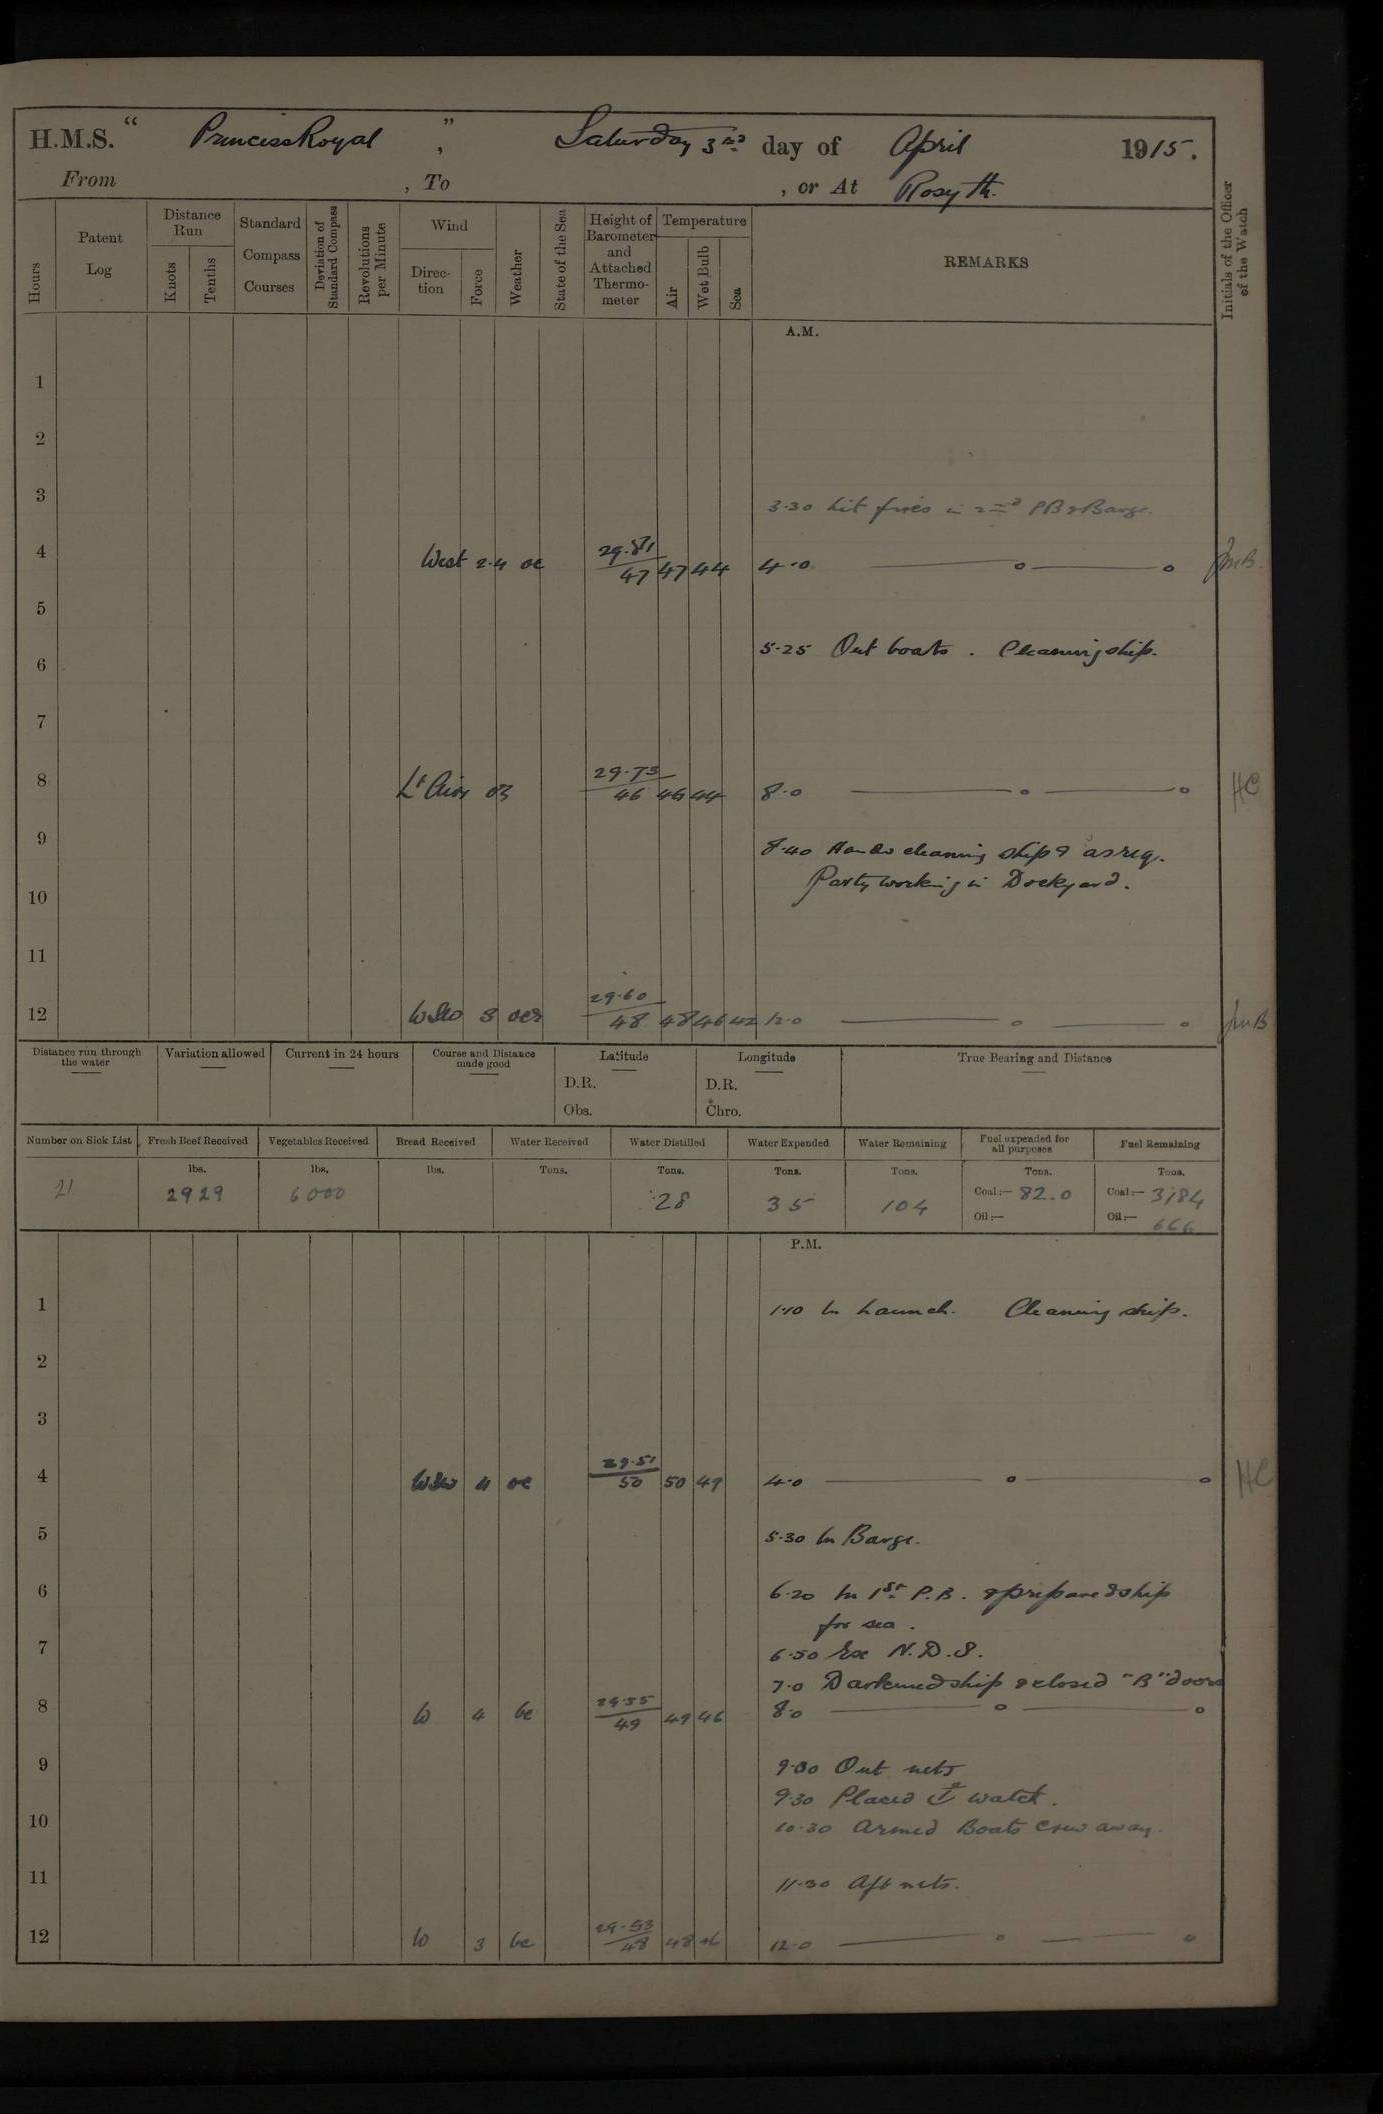 H.M.S. "Princess Royal", Saturday 3rd day of April 1915.
From , To , or At Rosyth.
Hours
Patent Log
Distance Run
Knots
Tenths
Standard Compass Courses
Deviation of Standard Compass
Revolutions per Minute
Wind
Direc-tion
Force
Weather
State of the Sea
Height of Barometer and Attached Thermo-meter
Temperature
Air
Wet Bulb
Sea
REMARKS
Initials of the Officer of the Watch
A.M.
1
2
3
3.30 Lit fires in 2nd PB & Barge.
4 West 2.4 oc 29.81 47 47 44 4.0
5
5.25 Out boats. Cleaning ship.
6
7
8 Lt Airs 29.73 46 46 44 8.0 HC
9
8.40 Hands cleaning ship & as req.
Party working in Dockyard.
10
11
12 WSW 3 29.60 48 48 46 42 12.0
Distance run through the water
Variation allowed
Current in 24 hours
Course and Distance made good
Latitude
D.R.
Obs.
Longitude
D.R.
Chro.
True Bearing and Distance
Number on Sick List
21
Fresh Beef Received
lbs.
2929
Vegetables Received
lbs.
6000
Bread Received
lbs.
Water Received
Tons.
Water Distilled
Tons.
28
Water Expended
Tons.
35
Water Remaining
Tons.
104
Fuel expended for all purposes
Tons.
Coal:— 82.0
Oil:—
Fuel Remaining
Tons.
Coal:— 3184
Oil:— 666
P.M.
1 1.10 In Launch. Cleaning ship.
2
3
4 WSW 4 oc 29.51 50 50 49 4.0 HC
5 5.30 In Barge.
6 6.20 In 1st P.B. & prepared ship
for sea.
7 6.50 Ex N.D.S.
7.0 Darkened ship & closed "B" doors
8 W 4 bc 29.55 49 49 46 8.0
9 9.00 Out nets
9.30 Placed watch.
10 10.30 Armed Boats Crew away.
11 11.30 Aft nets.
12 W 3 bc 29.53 48 48 12.0